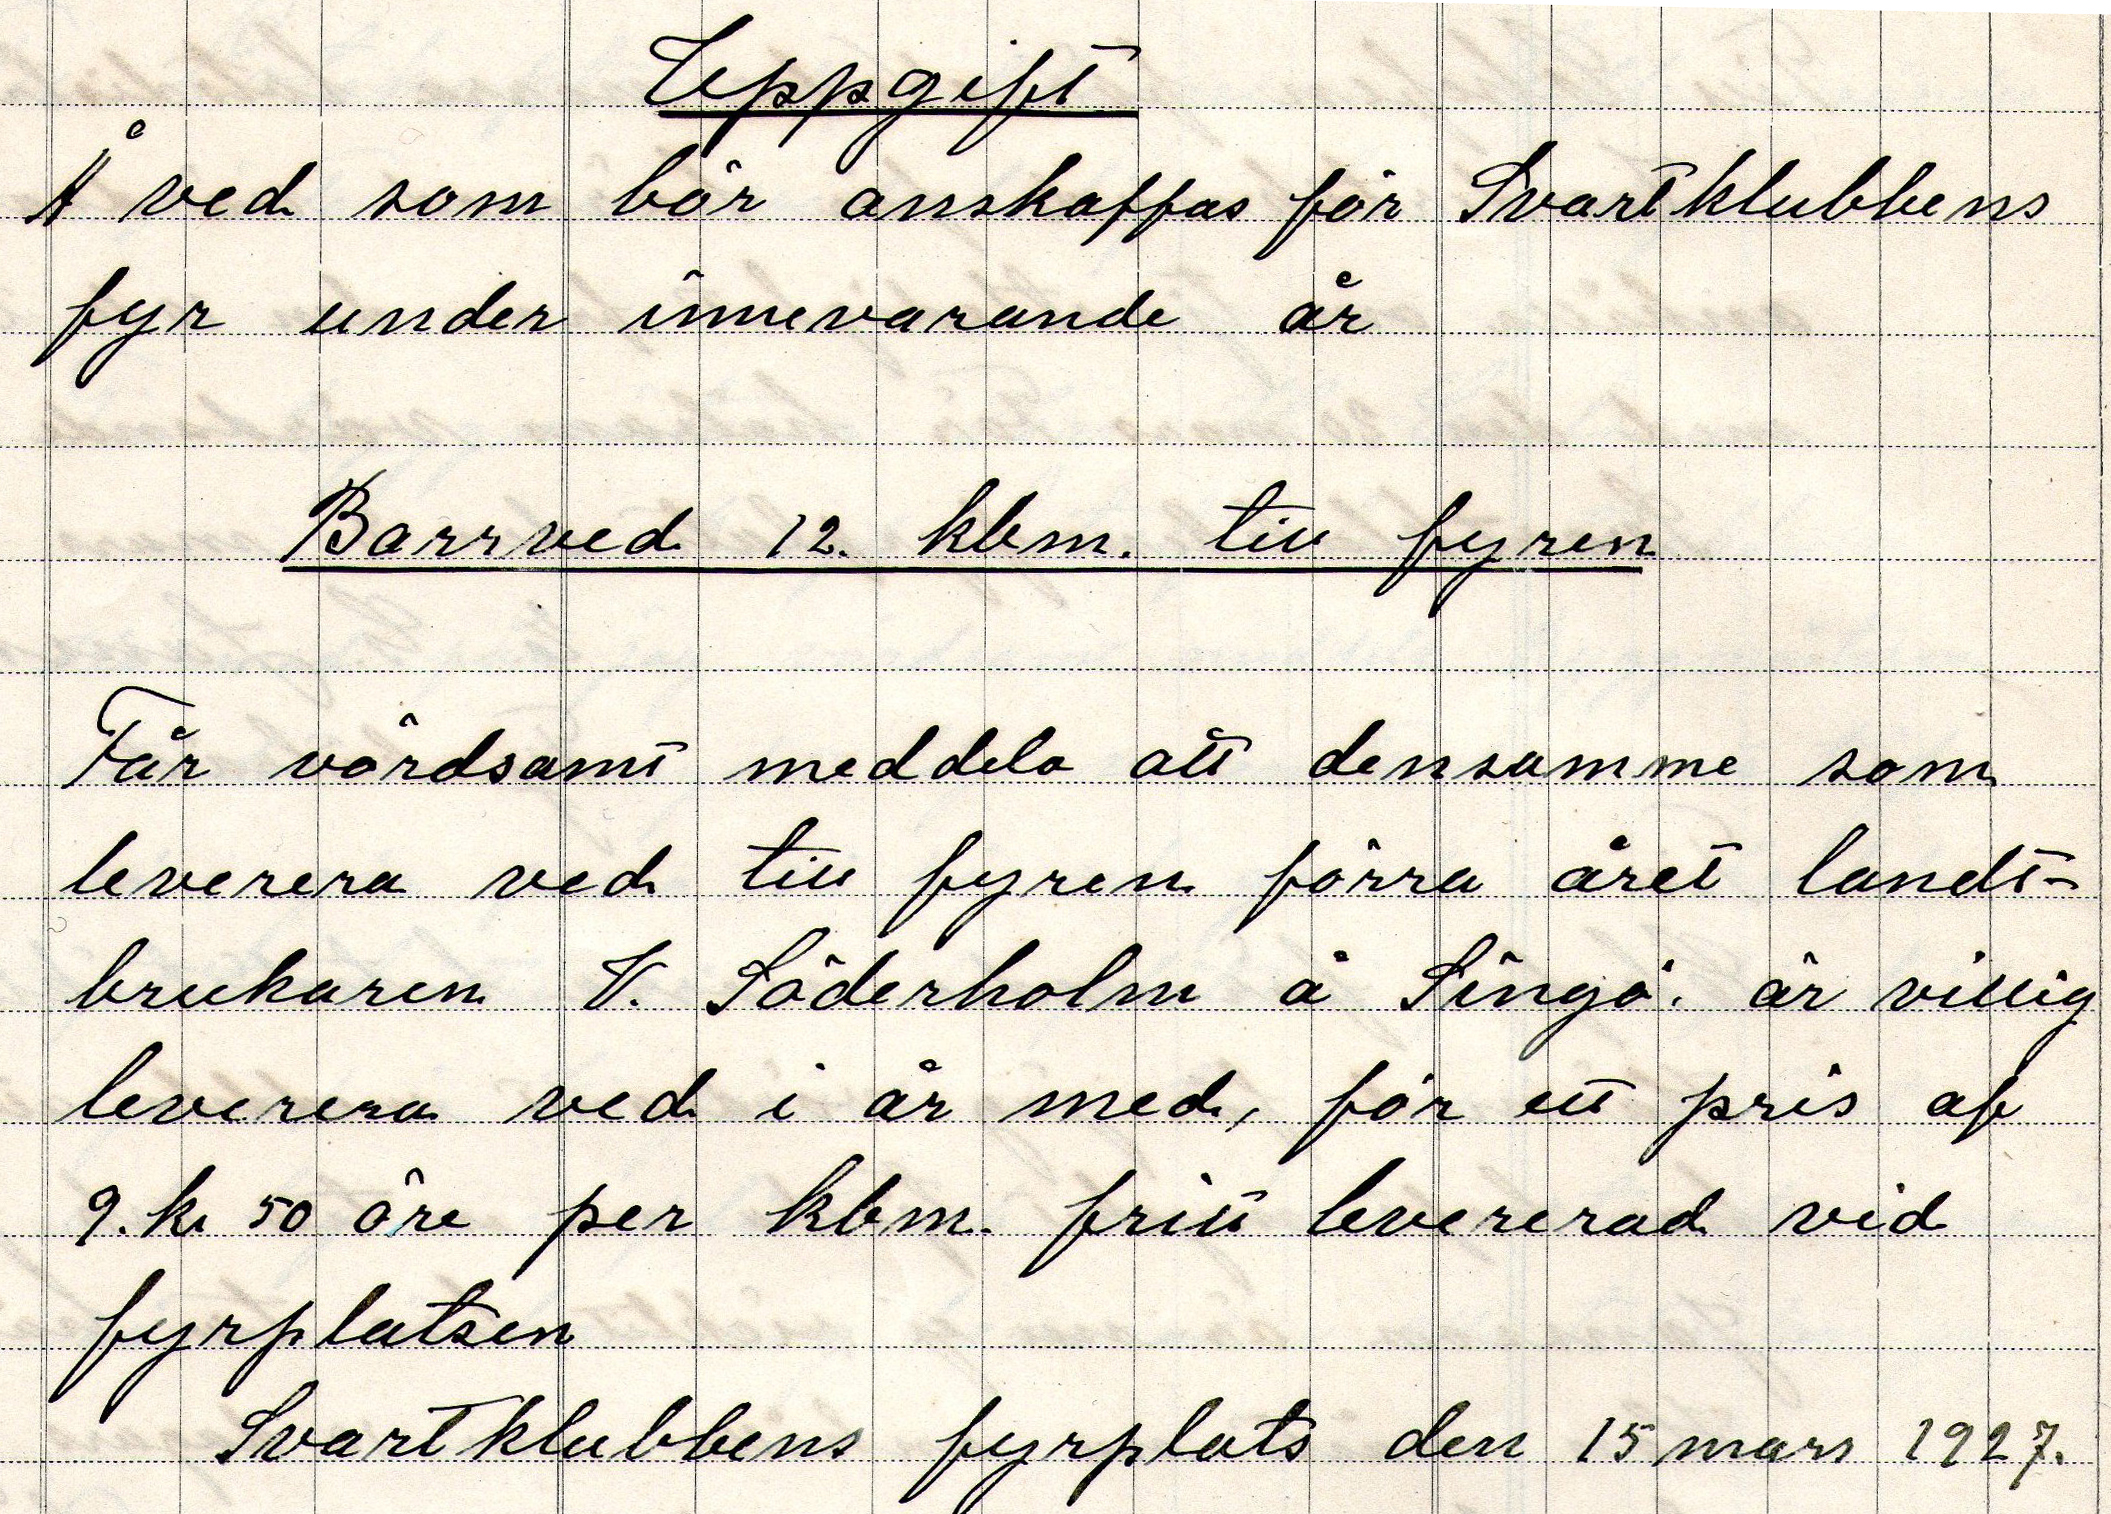 Uppgift
Å ved som bör anskaffas för Svartklubbens
fyr under innevarande år
Barrved 12. kbm. till fyren
Får vördsamt meddela att densamme som
leverera ved till fyren förra året landt-
brukaren V. Söderholm å Singö. är villig
leverera ved i år med, för ett pris af
9. kr 50 öre per kbm. fritt levererad vid
fyrplatsen
Svartklubbens fyrplats den 15 mars 1927.